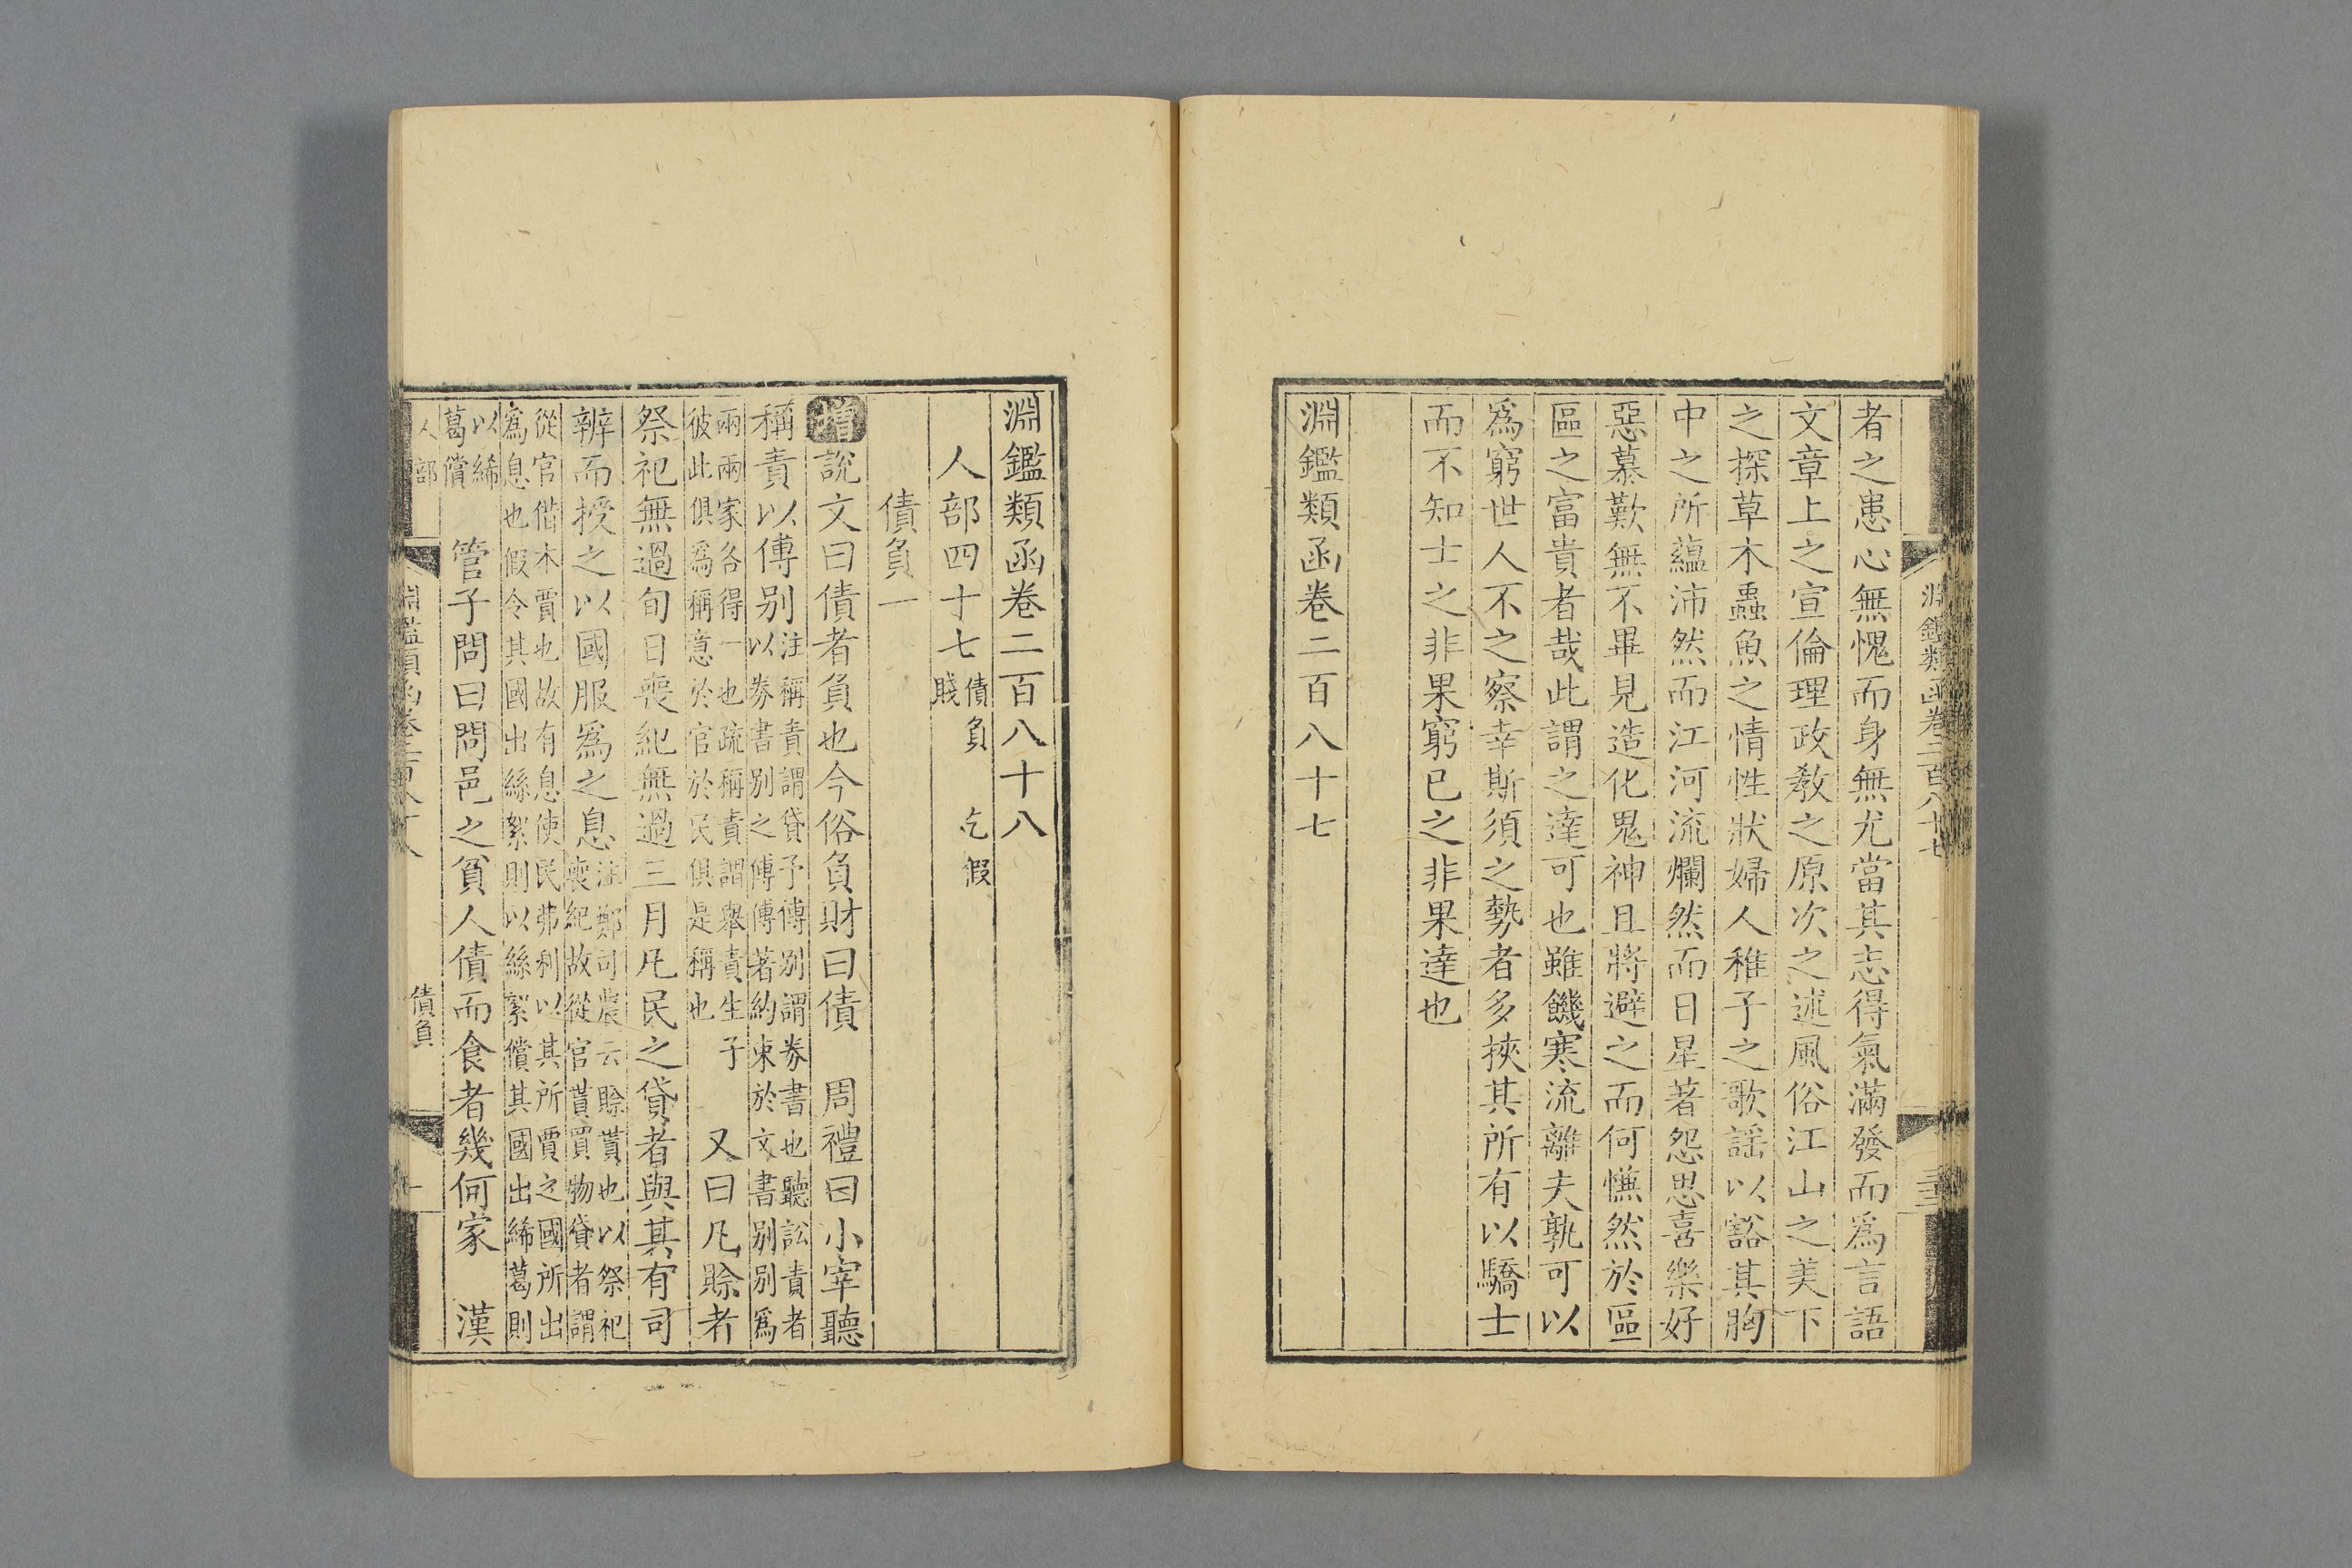 淵鑑類函卷二百八十七
者之患心無愧而身無尤當其志得氣滿發而爲言語
文章上之宣倫理政教之原次之述風俗江山之美下
之探草木蟲魚之情性狀婦人稚子之歌謡以豁其胸
中之所蘊沛然而江河流爛然而日星著怨思喜樂好
惡慕歎無不畢見造化鬼神且將避之而何憮然於區
區之富貴者哉此謂之達可也雖饑寒流離夫孰可以
爲窮世人不之察幸斯須之勢者多挾其所有以驕士
而不知士之非果窮已之非果達也
淵鑑類函卷二百八十七
淵鑑類函卷二百八十八
人部四十七債負 乞假
賤
債負一
增說文曰債者負也今俗負財曰債 周禮曰小宰聽
稱責以傅别注稱責謂貸予傅別謂券書也聽訟責者
以券書別之傅傅著約束於文書别别爲
兩兩家各得一也疏稱責謂舉責生子
彼此俱爲稱意於官於民俱是稱也 又曰凡賒者
祭祀無過旬日喪紀無過三月凡民之貸者與其有司
辨而授之以國服爲之息注鄭司農云賒貰也以祭祀
喪紀故從官貰買物貸者謂
從官借本賈也故有息使民弗利以其所賈之國所出
爲息也假令其國出絲絮則以絲絮償其國出絺葛則
以絺
葛償 管子問曰問邑之貧人債而食者幾何家 漢
人部
淵鑑類函卷二百八十八
債負
一